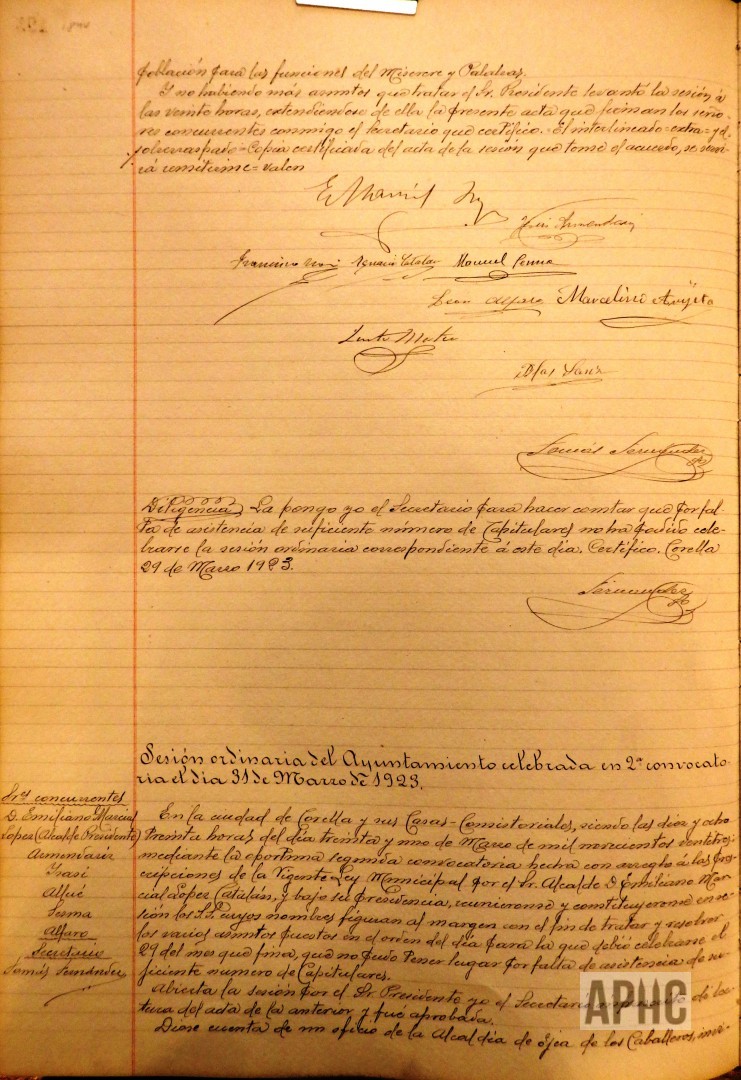 población para las funciones del Miserere y Palabras.
Y no habiendo más asuntos que tratar el Sr. Presidente levantó la sesión á
las veinte horas, extendiéndose de ella la presente acta que firman los seño-
res concurrentes conmigo el Secretario que certifico. = El interlineado = extra = y el
sobrerraspado = Copia certificada del acta de la sesión que tomó el acuerdo, se
= valen
E. Marcial
Luis Armendariz
Francisco Ignacio Catalan Manuel
Leon Alfaro Marcelino
Mateo
Blas Sanz
Tomás Fernández
Diligencia, La pongo yo el Secretario para hacer constar que por fal-
ta de asistencia de suficiente número de Capitulares no ha podido cele-
brarse la sesión ordinaria correspondiente á este día. Certifico. Corella
29 de Marzo 1923.
Fernández
Sesión ordinaria del Ayuntamiento celebrada en 2ª convocato-
ria el día 31 de Marzo de 1923.
Sres concurrentes
D. Emiliano Marcial
Lopez (Alcalde Presidente)
Armendariz
Isasi
Allué
Sesma
Alfaro
Secretario
Tomás Fernández
En la ciudad de Corella y sus Casas-Consistoriales, siendo las diez y ocho
treinta horas del día treinta y uno de Marzo de mil novecientos veintitres
mediante la oportuna segunda convocatoria hecha con arreglo á las pres-
cripciones de la Vigente Ley Municipal por el Sr. Alcalde D. Emiliano Mar-
cial Lopez Catalán, y bajo su Presidencia, reunieronse y constituyeronse en se-
sión los S.S. cuyos nombres figuran al margen con el fin de tratar y resolver
los varios asuntos puestos en el orden del día para la que debió celebrarse el
29 del mes que fina, que no pudo tener lugar por falta de asistencia de su-
ficiente numero de Capitulares.
Abierta la sesión por el Sr. Presidente yo el Secretario de lec-
tura del acta de la anterior y fue aprobada.
Diose cuenta de un oficio de la Alcaldía de Ejea de los Caballeros, invi-
APHC